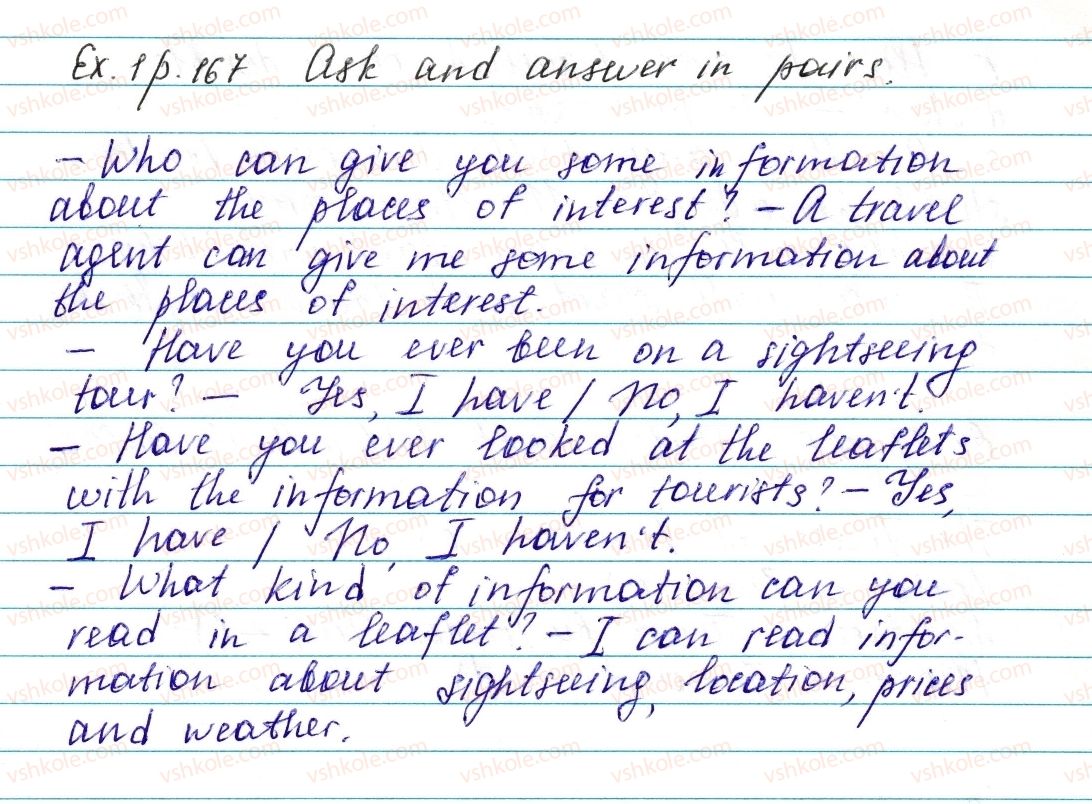 Ex. 1 p. 167 Ask and answer in pairs.
– Who can give you some information
about the places of interest? – A travel
agent can give me some information about
the places of interest.
– Have you ever been on a sightseeing
tour? – Yes, I have / No, I haven't.
– Have you ever looked at the leaflets
with the information for tourists? – Yes,
I have / No, I haven't.
– What kind of information can you
read in a leaflet? – I can read infor-
mation about sightseeing, location, prices
and weather.